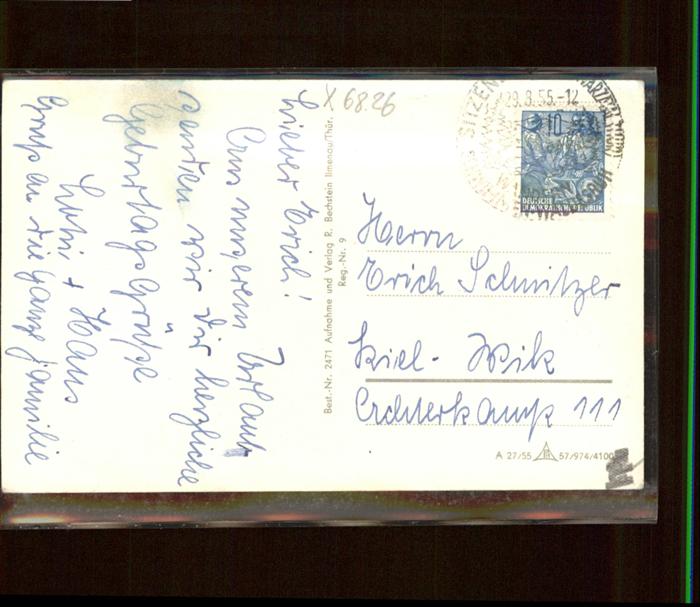 X 6826
Lieber Erich!
Aus unserem Urlaub
senden wir dir herzliche
Geburtstagsgrüße
Hans
Gruß an die ganze Familie
Best.-Nr. 2471 Aufnahme und Verlag R. Bechstein Ilmenau/Thür.
Reg.-Nr. 9
29.8.55.-12
SITZEN
10
DEUTSCHE
DEMOKRATISCHE REPUBLIK
Herrn
Erich Schnitzer
Kiel-Wik
Achterkamp 111
A 27/55 57/974/4100